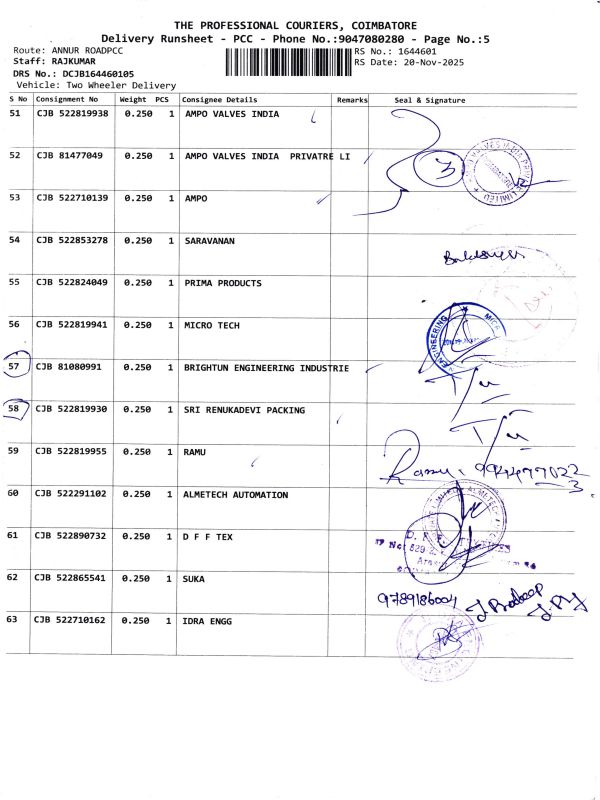 THE PROFESSIONAL COURIERS, COIMBATORE
Delivery Runsheet - PCC - Phone No.:9047080280 - Page No.:5
Route: ANNUR ROADPCC RS No.: 1644601
Staff: RAJKUMAR RS Date: 20-Nov-2025
DRS No.: DCJB164460105
Vehicle: Two Wheeler Delivery
S No Consignment No Weight PCS Consignee Details Remarks Seal & Signature
51 CJB 522819938 0.250 1 AMPO VALVES INDIA
52 CJB 81477049 0.250 1 AMPO VALVES INDIA PRIVATRE LI
3
LIMITED
53 CJB 522710139 0.250 1 AMPO
54 CJB 522853278 0.250 1 SARAVANAN
55 CJB 522824049 0.250 1 PRIMA PRODUCTS
56 CJB 522819941 0.250 1 MICRO TECH
ENGINEERING
57 CJB 81080991 0.250 1 BRIGHTUN ENGINEERING INDUSTRIE
58 CJB 522819930 0.250 1 SRI RENUKADEVI PACKING
59 CJB 522819955 0.250 1 RAMU
Ramu
60 CJB 522291102 0.250 1 ALMETECH AUTOMATION
61 CJB 522890732 0.250 1 D F F TEX
62 CJB 522865541 0.250 1 SUKA
9789186004 J. Pradeep
63 CJB 522710162 0.250 1 IDRA ENGG